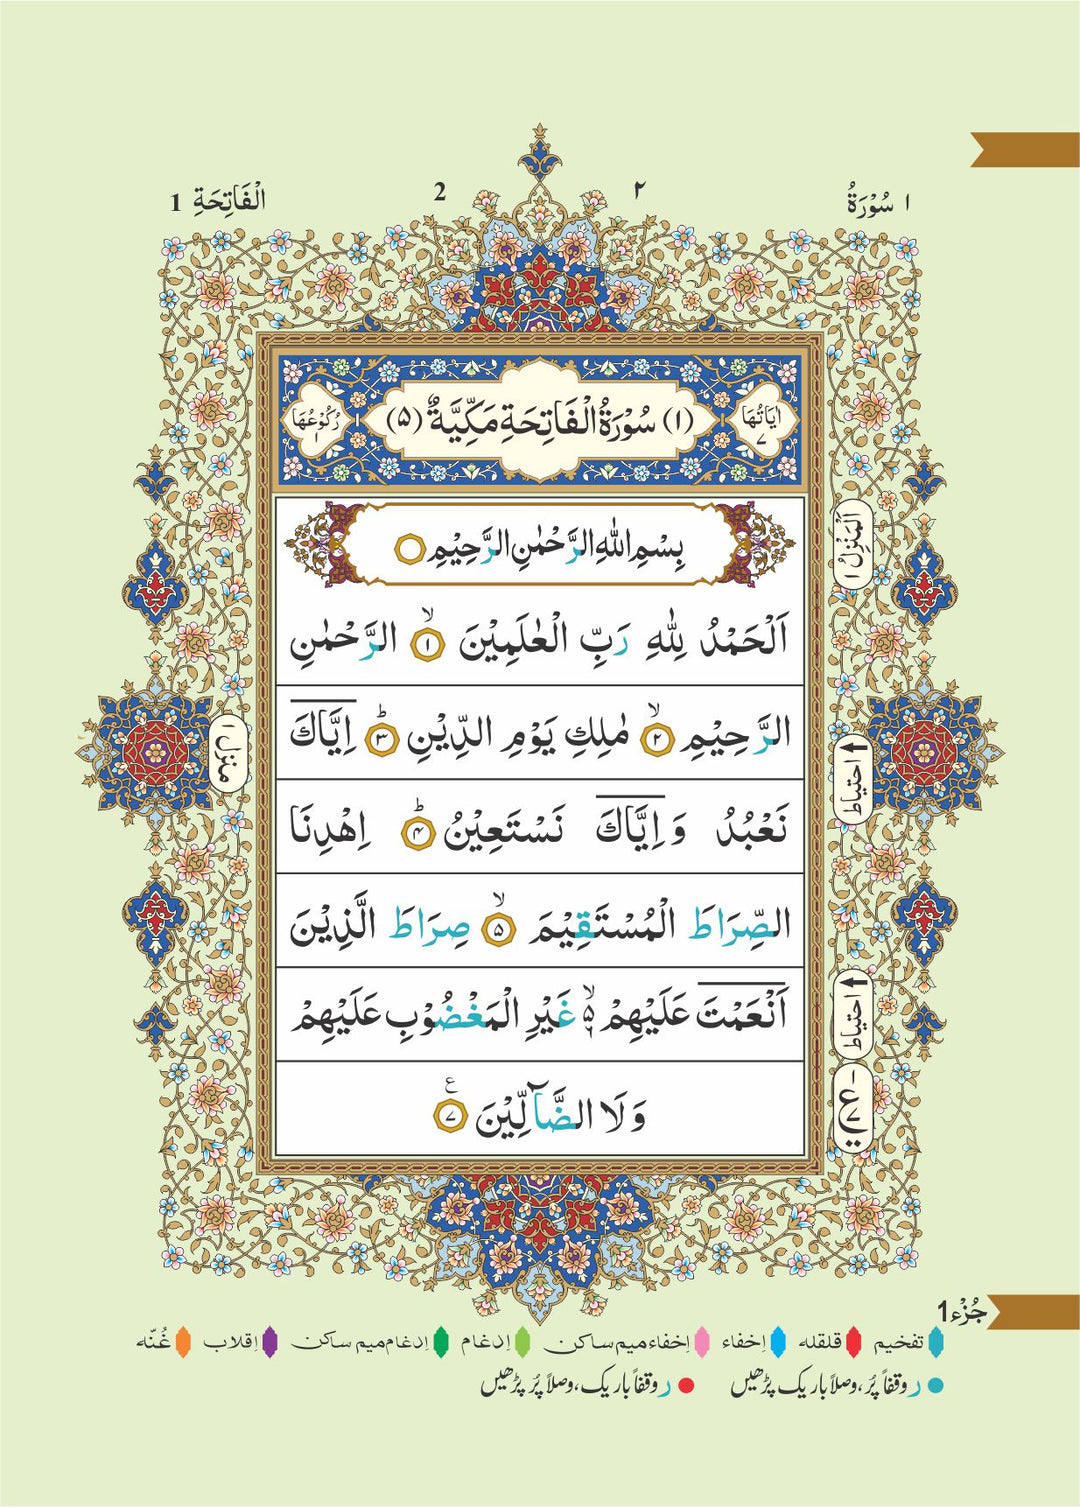 ١ سُوْرَةُ ٢ 2 الْفَاتِحَةِ 1
اٰيَاتُهَا ٧ (١) سُوْرَةُ الْفَاتِحَةِ مَكِّيَّةٌ (٥) رُكُوْعُهَا ١
بِسْمِ اللّٰهِ الرَّحْمٰنِ الرَّحِيْمِ
اَلْحَمْدُ لِلّٰهِ رَبِّ الْعٰلَمِيْنَ ۙ ١ الرَّحْمٰنِ
الرَّحِيْمِ ۙ ٢ مٰلِكِ يَوْمِ الدِّيْنِ ؕ ٣ اِيَّاكَ
نَعْبُدُ وَ اِيَّاكَ نَسْتَعِيْنُ ؕ ۴ اِهْدِنَا
الصِّرَاطَ الْمُسْتَقِيْمَ ۙ ۵ صِرَاطَ الَّذِيْنَ
اَنْعَمْتَ عَلَيْهِمْ ۙ۬ ۵ غَيْرِ الْمَغْضُوْبِ عَلَيْهِمْ
وَلَا الضَّآلِّيْنَ ٧ ع
اَلْمَنْزِلُ ١
منزل ١
احتياط
احتياط
جُزْء 1
تفخيم قلقله اِخفاء اِخفاء ميم ساكن اِدغام اِدغام ميم ساكن اِقلاب غُنّه
ر وقفاً پُر، وصلاً باریک پڑھیں ر وقفاً باریک، وصلاً پُر پڑھیں